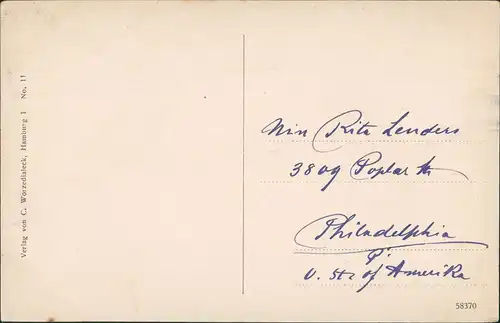 Verlag von C. Worzedialeck, Hamburg 1 No. 11
Miss Rita Lenders
3809 Poplar Str
Philadelphia
P.
U. St. of Amerika
58370